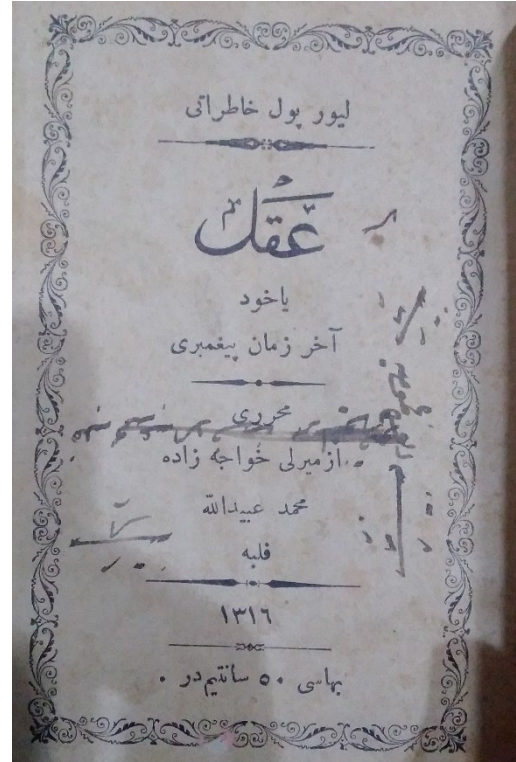 لیور پول خاطراتی
عقل
یاخود
آخر زمان پیغمبری
محرری
ازمیرلی خواجه زاده
محمد عبیدالله
فلبه
۱۳۱۶
بهاسی ۵۰ سانتیم در .